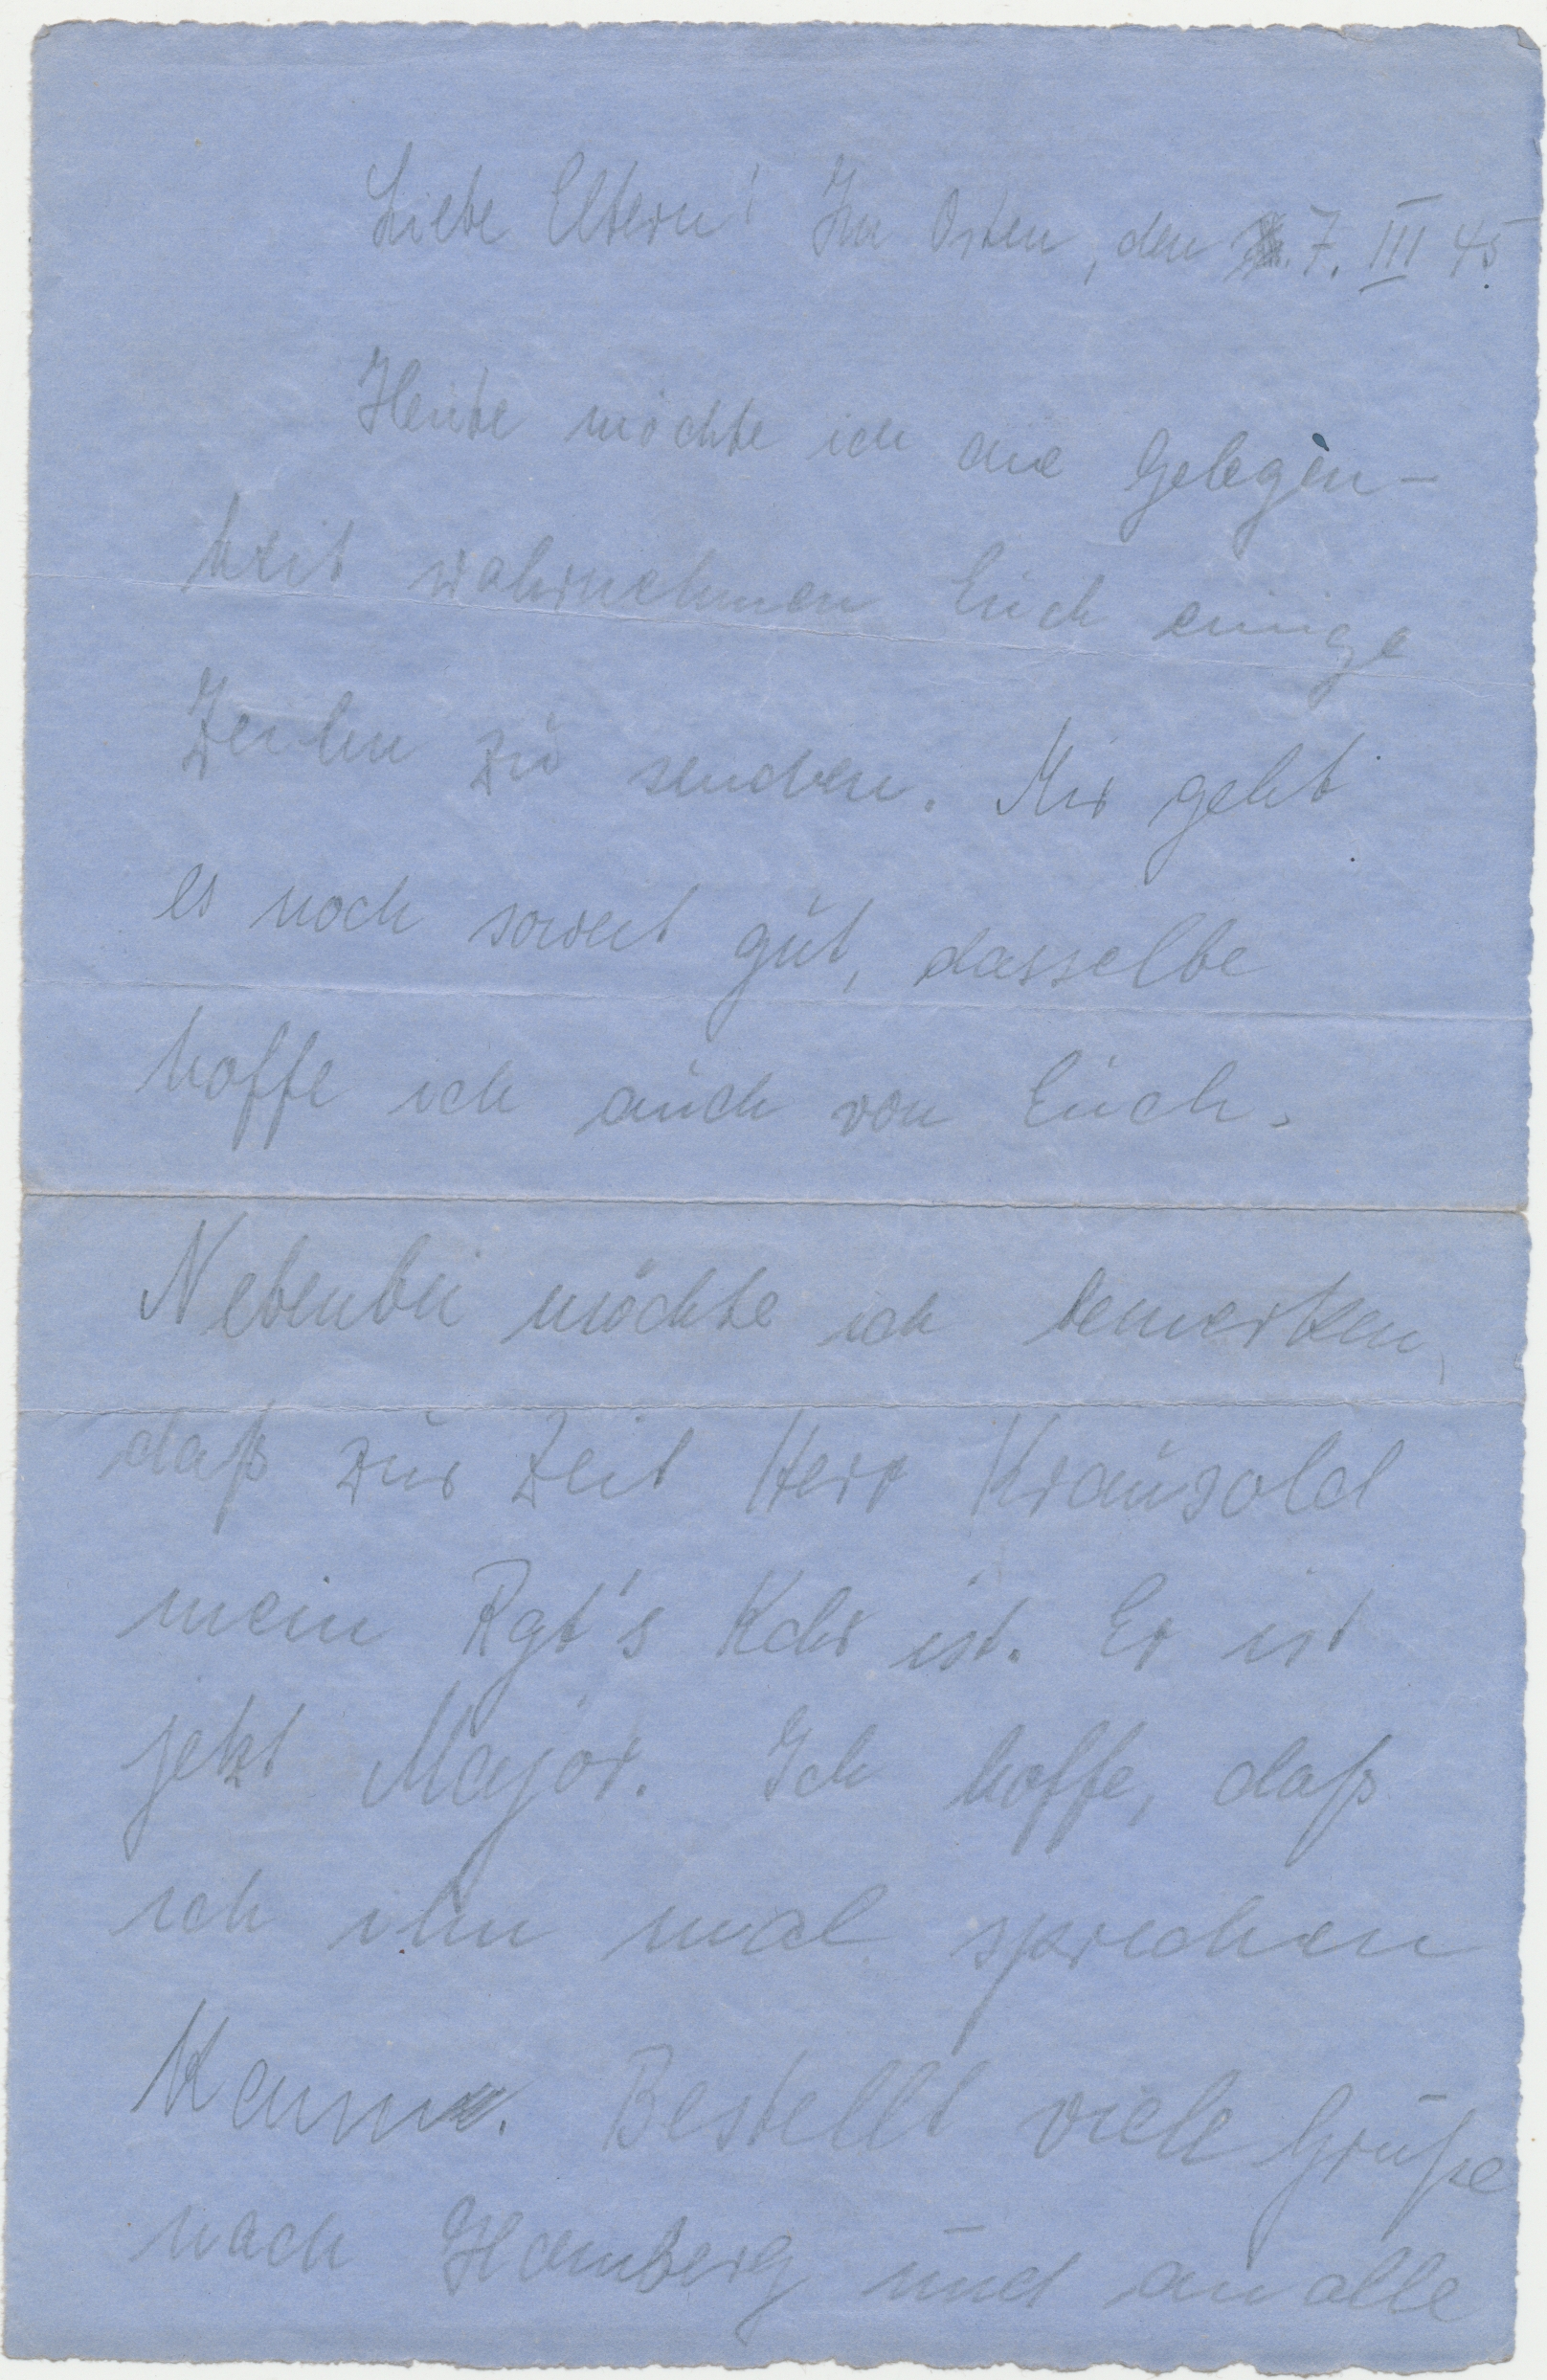 Liebe Eltern! Im Osten, den 7. III 45.
Heute möchte ich die Gelegen-
heit wahrnehmen Euch einige
Zeilen zu senden. Mir geht
es noch soweit gut, dasselbe
hoffe ich auch von Euch.
Nebenbei möchte ich bemerken,
daß zur Zeit Herr Krausold
mein Rgt's Kdr ist. Er ist
jetzt Major. Ich hoffe, daß
ich ihn mal sprechen
kann. Bestellt viele Grüße
nach Hamberg und an alle